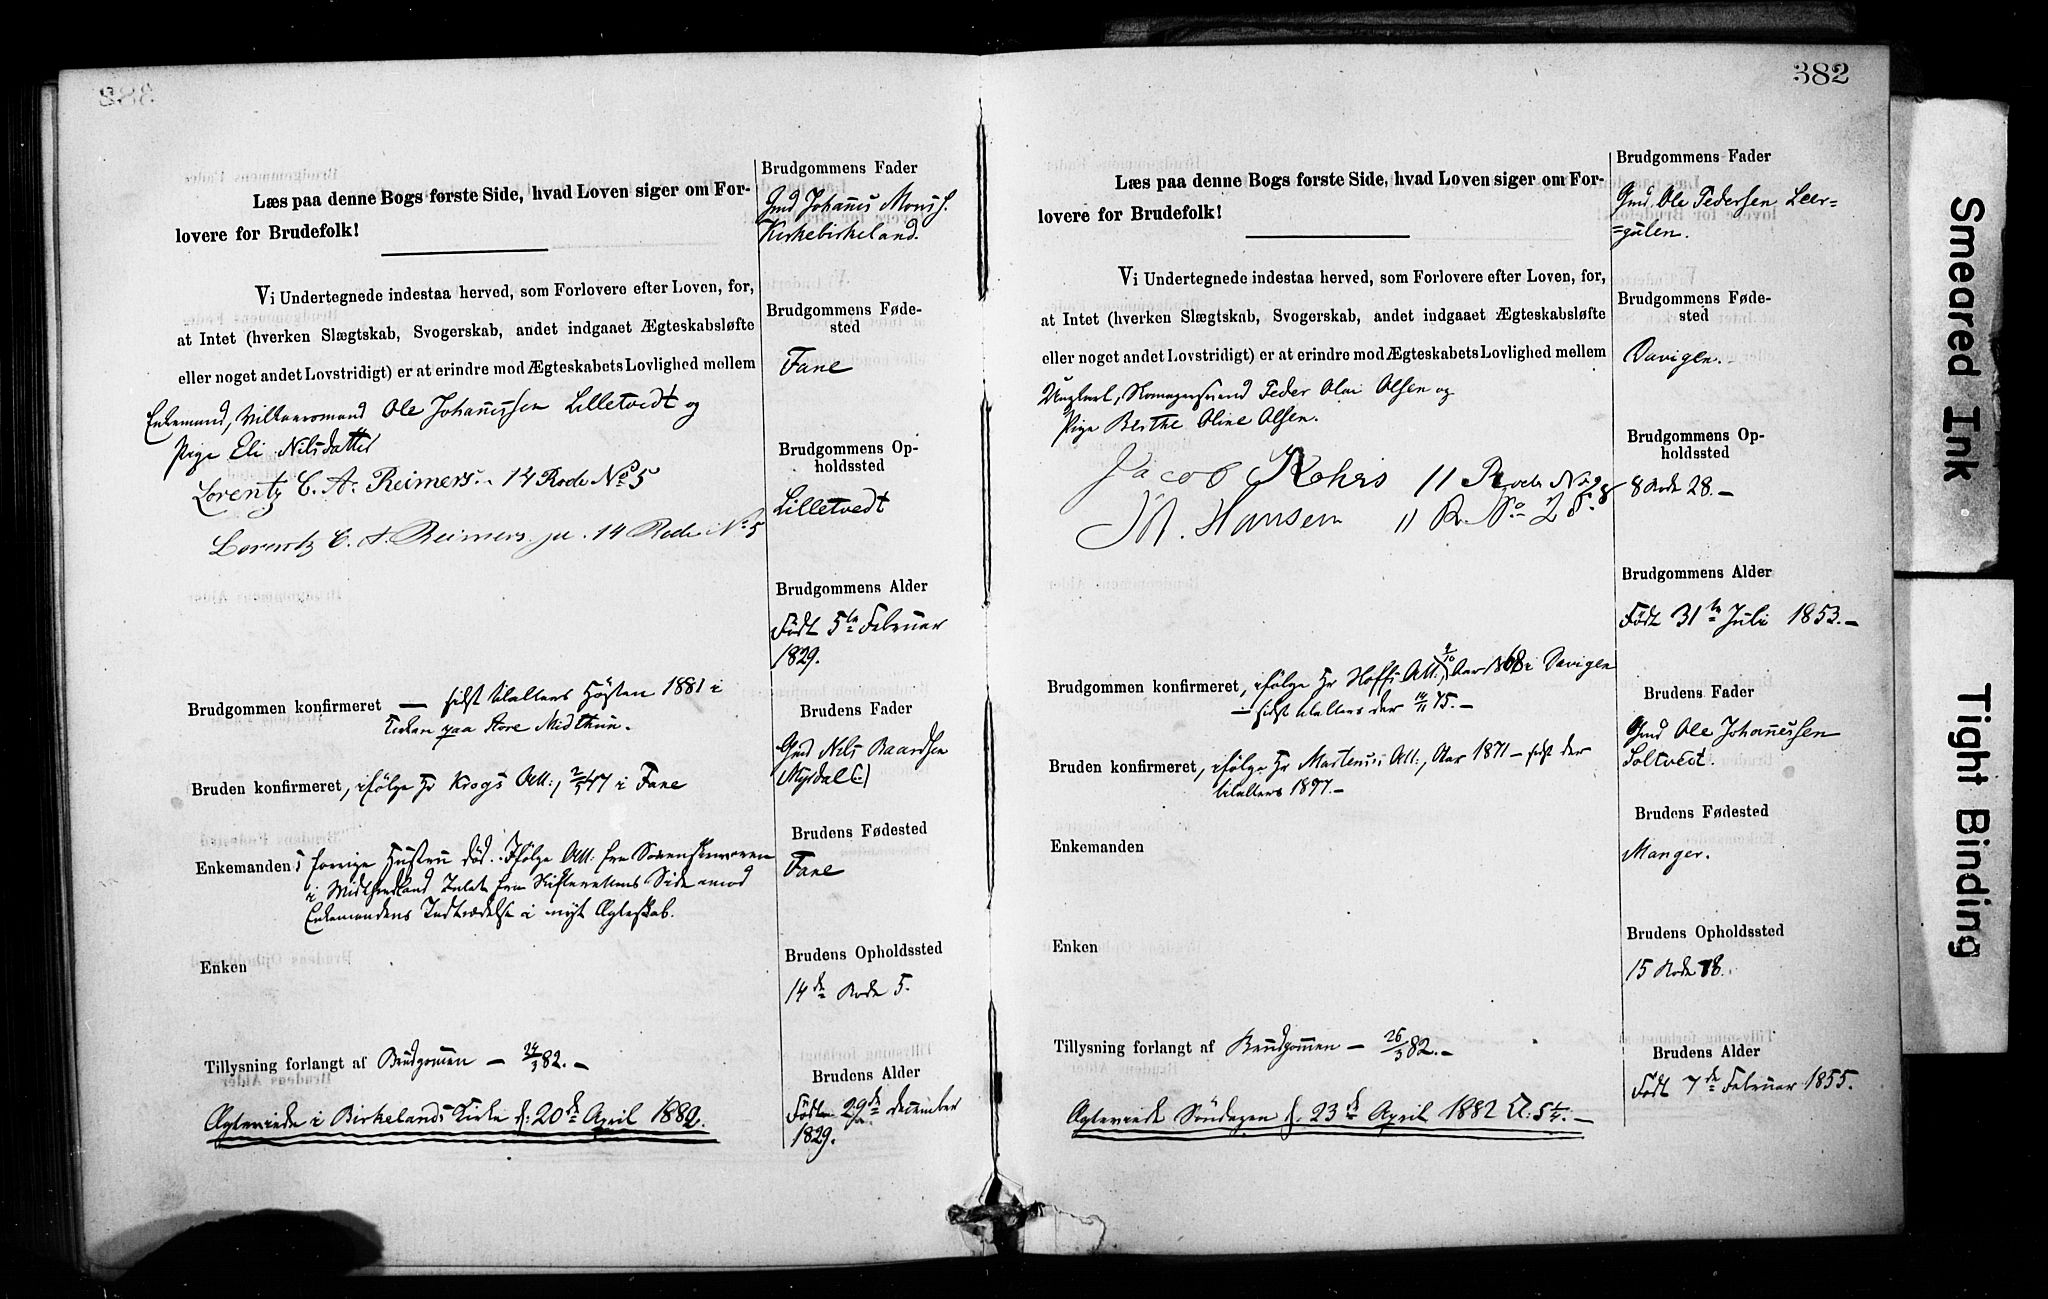 Læs paa denne Bogs første Side, hvad Loven siger om For-
lovere for Brudefolk!
Vi Undertegnede indestaa herved, som Forlovere efter Loven, for,
at Intet (hverken Slægtskab, Svogerskab, andet indgaaet Ægteskabsløfte
eller noget andet Lovstridigt) er at erindre mod Ægteskabets Lovlighed mellem
Enkemand, Ole Johannissen Lilletvedt og
Pige Eli Nilsdatter
Lorentz C. A. Reimers. 14 Rode No 5
Lorentz C. A Reimers ju. 14 Rode No 5
Brudgommen konfirmeret — sidst til alters Høsten 1881 i
Kirken paa Store Midthun.
Bruden konfirmeret, ifølge Hr Krogs Att:, 2/5 47 i Fane
Enkemandens forrige Hustru død. Ifølge Att: fra Sorenskriveren
i Midthordland Intet fra Skifterettens Side imod
Enkemandens Indtrædelse i nyt Ægteskab.
Enken
Tillysning forlangt af Brudgommen — 24/3 82. —
Ægteviede i Birkelands Kirke d: 20de April 1882.
Brudgommens Fader
Gmd Johannis Mons
Kirkebirkeland.
Brudgommens Føde-
sted
Fane
Brudgommens Op-
holdssted
Lilletvedt
Brudgommens Alder
Født 5te Februar
1829.
Brudens Fader
Gmd Nils Baardsen
Myrdal
Brudens Fødested
Fane
Brudens Opholdssted
14de Rode 5.
Brudens Alder
Født 29de December
1829.
382
Læs paa denne Bogs første Side, hvad Loven siger om For-
lovere for Brudefolk!
Vi Undertegnede indestaa herved, som Forlovere efter Loven, for,
at Intet (hverken Slægtskab, Svogerskab, andet indgaaet Ægteskabsløfte
eller noget andet Lovstridigt) er at erindre mod Ægteskabets Lovlighed mellem
Ungkarl, Skomagersvend Peder Olai Olsen og
Pige Berthe Oline Olsen.
Jacob Rohrs 11 Rode No 28
M. Hansen 11 R. No 28
Brudgommen konfirmeret, ifølge Hr Hoffs Att:, Aar 1868 i Davigen
— sidst til alters den 14/11 75. —
Bruden konfirmeret, ifølge Hr Martens Att:, Aar 1871 — sidst der
til alters 1877. —
Enkemanden
Enken
Tillysning forlangt af Brudgommen — 26/3 82. —
Ægteviede Søndagen d. 23de April 1882 Kl: 5¼. —
Brudgommens Fader
Gmd. Ole Pedersen Leer=
=gulen.
Brudgommens Føde-
sted
Davigen.
Brudgommens Op-
holdssted
8 Rode 28. —
Brudgommens Alder
Født 31te Juli 1853. —
Brudens Fader
Gmd Ole Johannessen
Soltvedt.
Brudens Fødested
Manger.
Brudens Opholdssted
15 Rode 18.
Brudens Alder
Født 7de Februar 1855.
Smeared Ink
Tight Binding